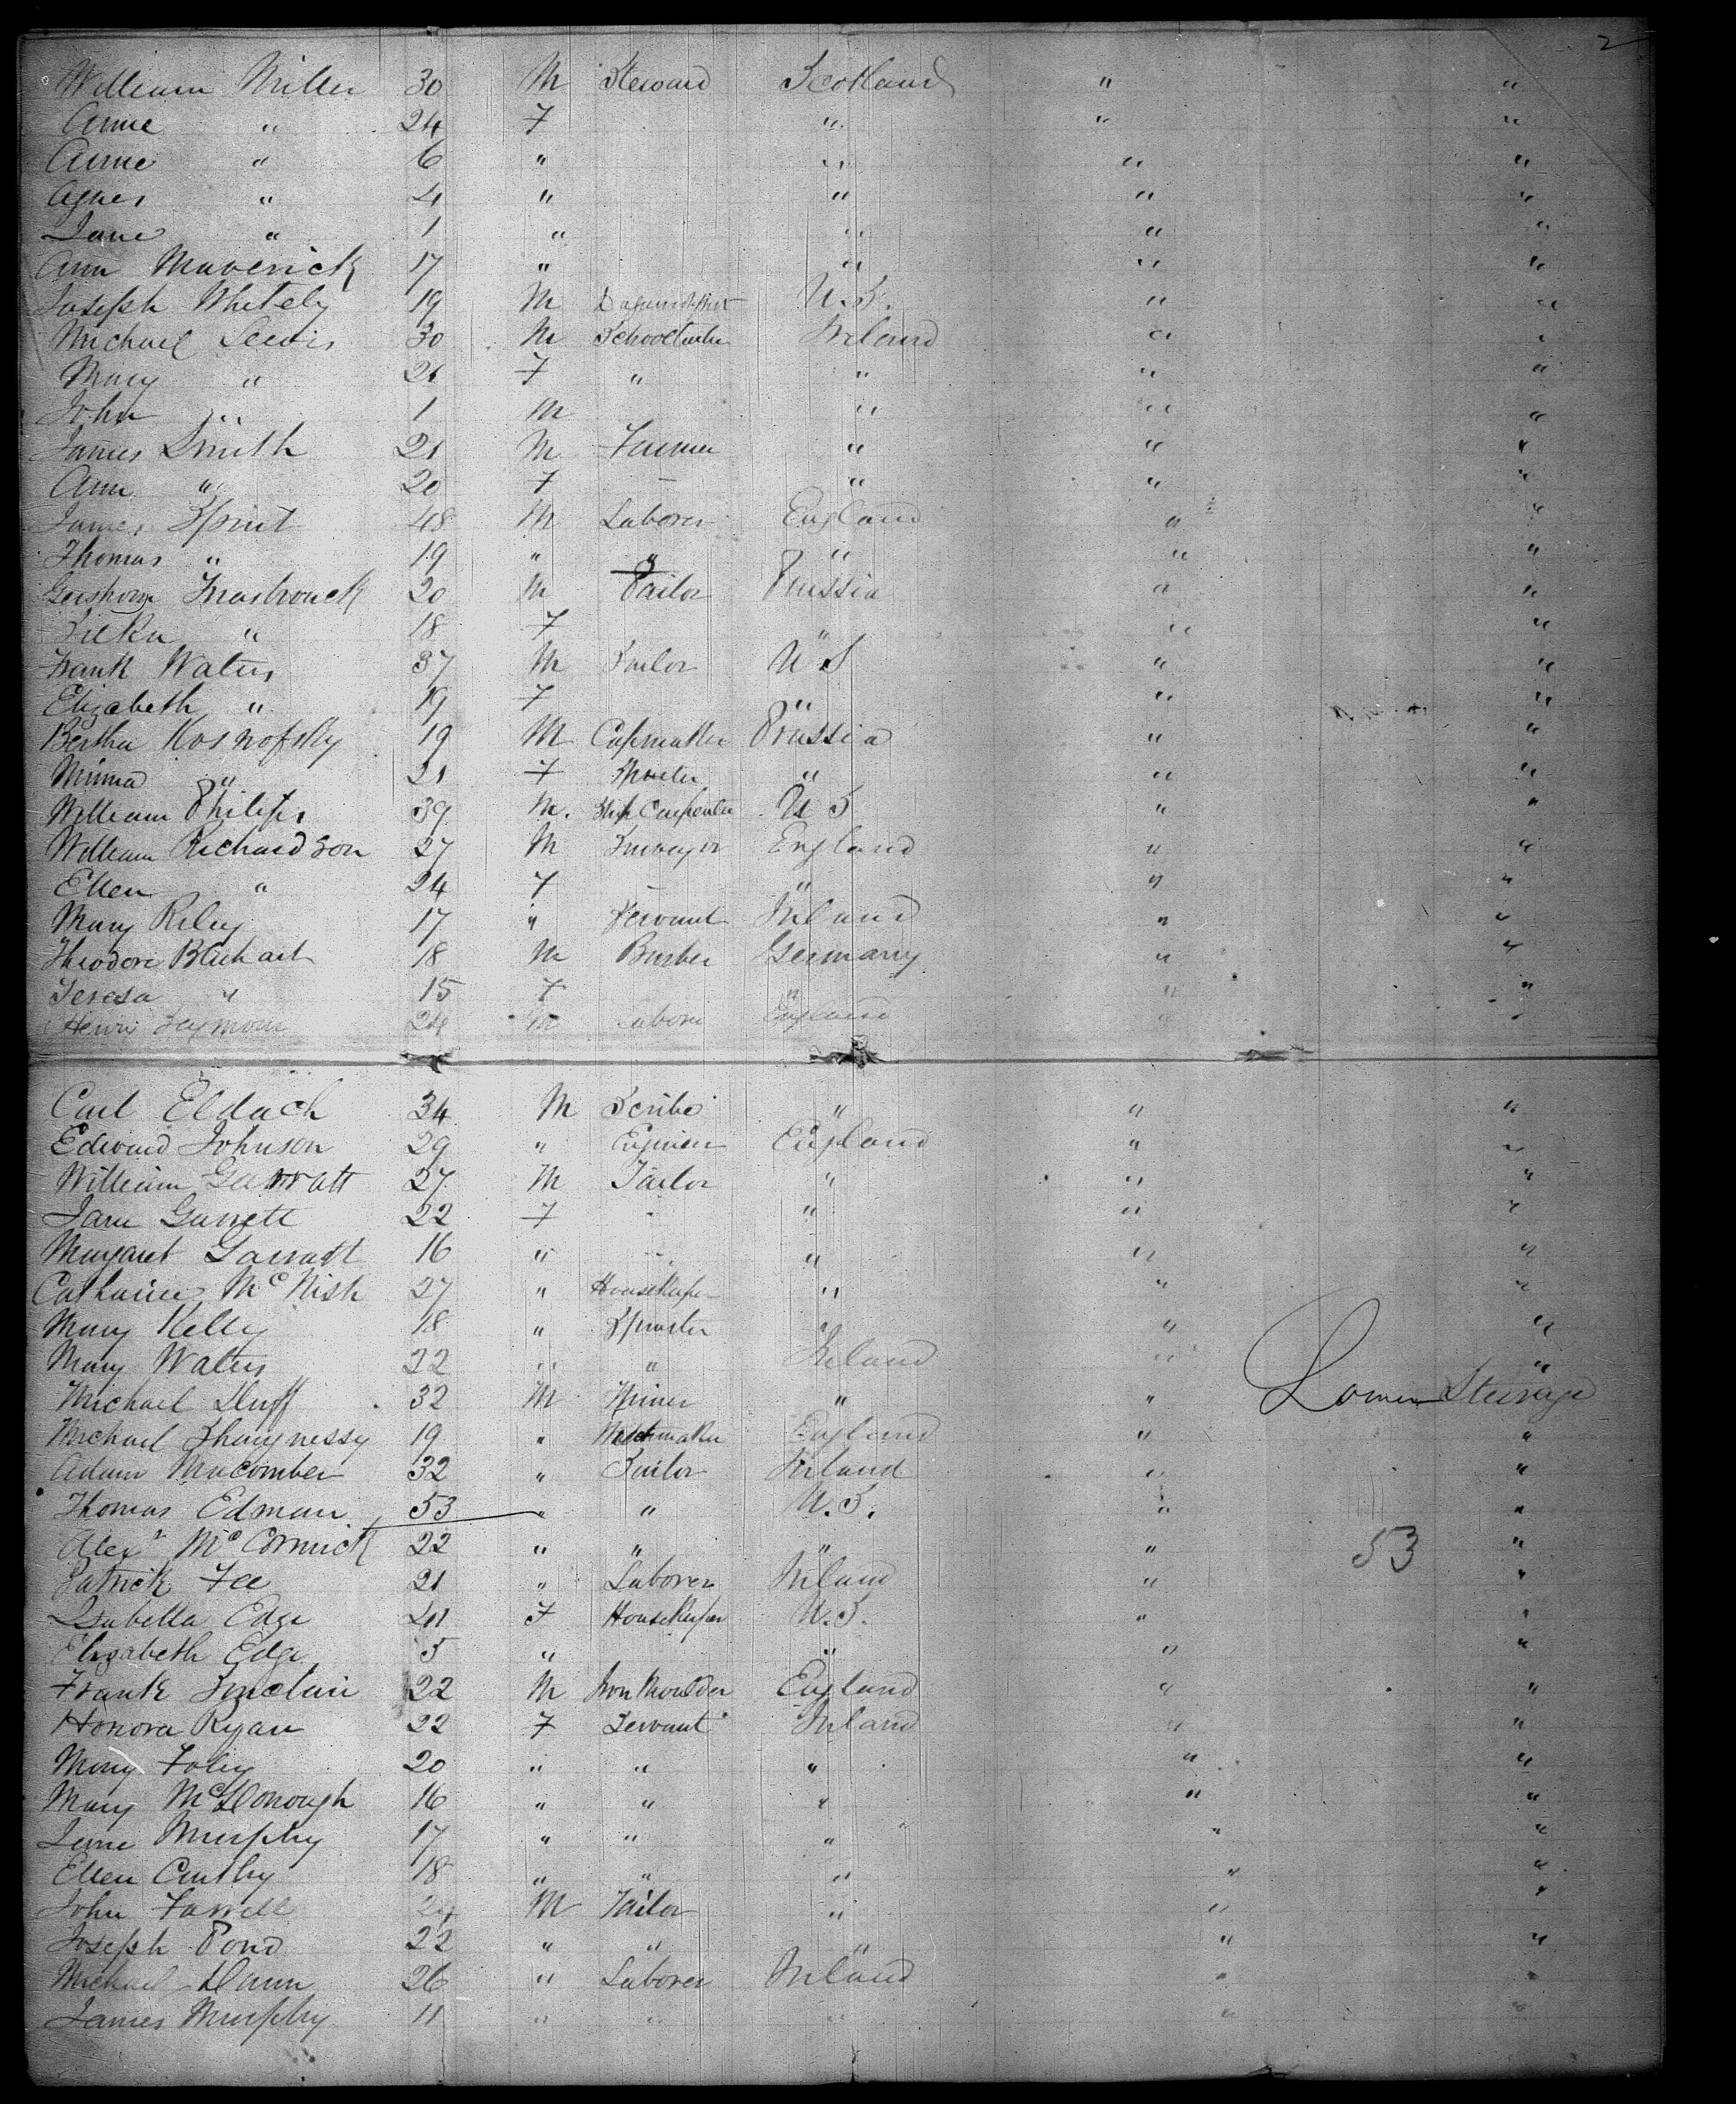 2
William Miller 30 M Steward Scotland " "
Anne " 24 F " " "
Anne " 6 " " " "
Agnes " 4 " " " "
Jane " 1 " " " "
Ann Maverick 17 " " " "
Joseph Whitely 19 M U.S. " "
Michael Lewis 30 M Schoolteacher Ireland " "
Mary " 21 F " " " "
John " 1 M " " "
James Smith 21 M Farmer " " "
Ann " 20 F — " " "
James Sprint 48 M Laborer England " "
Thomas " 19 " " " " "
Gershom 20 M Tailor Prussia " "
" 18 F " " "
Frank Waters 37 M Sailor U S " "
Elizabeth " 19 F " " "
Bertha Kosnofsky 19 M Capmaker Prussia " "
Minna " 21 F Spinster " " "
William Philips 39 M. Ship Carpenter U S " "
William Richardson 27 M Surveyor England " "
Ellen " 24 F — " " "
Mary Riley 17 " Servant Ireland " "
Theodore 18 M Barber Germany " "
Teresa " 15 F " " "
Henri Seymour 24 M Labore England " "
Carl Eldach 34 M Scribe " " "
Edward Johnson 29 " Engineer England " "
William Garratt 27 M Tailor " " "
Jane Garrett 22 F - " " "
Margaret Garratt 16 " " " " "
Catharine McNish 27 " Housekeeper " " "
Mary Kelly 18 " Spinster " " "
Mary Waters 22 " " Ireland " "
Michael Duff 32 M Miner " " Lower Steerage
Michael Shaugnessy 19 " Watchmaker England " "
Adam Macomber 32 " Sailor Ireland " "
Thomas Edman 53 " " U.S. " "
Alexr McCormick 22 " " " " 53 "
Patrick Fee 21 " Laborer Ireland " "
Isabella Edge 41 F Housekeeper U.S. " "
Elizabeth Edge 5 " " " "
Frank Sinclair 22 M Iron Moulder England " "
Honora Ryan 22 F Servant Ireland " "
Mary Foley 20 " " " " "
Mary McDonough 16 " " " " "
Jane Murphy 17 " " " " "
Ellen Carthy 18 " " " " "
John Farrell 24 M Tailor " " "
Joseph Pond 22 " " " " "
Michael Dunn 26 " Laborer Ireland " "
James Murphy 11 " " " " "